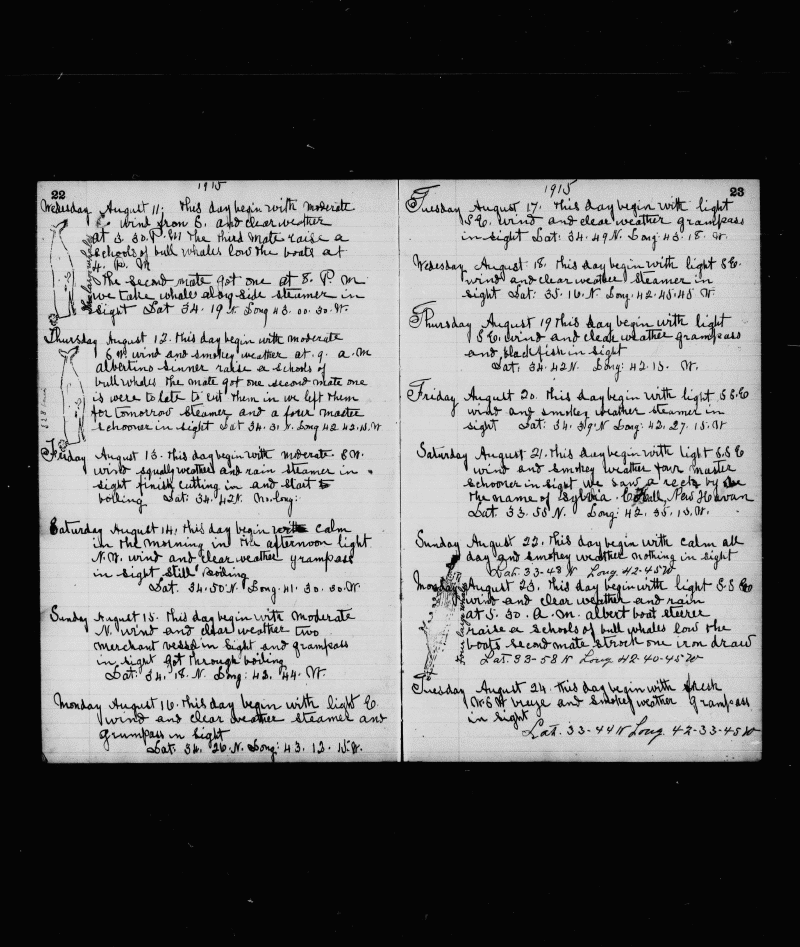 22
1915
Wedesday August 11; This day begin with moderate
wind from S. and clear weather
at 3 30. P. M The third mate raise a
schools of bull whales low the boats at
4. P. M
The second mate got one at 8. P. M
we take whale along-side steamer in
sight Lat 34. 19 N. Long 43. 00. 30. W.
Thursday August 12. This day begin with moderate
S W. wind and smokey weather at. 9. a. m
albertino sinner raise a schools of
bull whales the mate got one second mate one
is were to late to cut them in we left them
for tomorrow steamer and a four master
schooner in sight Lat 34. 31 N. Long 42 42. 15. W
Friday August 13. This day begin with moderate S W.
wind squally weather and rain steamer in
sight finish cutting in and start to
boiling Lat: 34. 42 N. no. long:
Saturday August 14, This day begin with calm
in the morning in the afternoon light
N. W. wind and clear weather grampass
in sight still boiling
Lat. 34. 50' N. Long. 41. 30. 30. W.
Sunday August 15. This day begin with moderate
N. wind and clear weather two
merchant vessel in sight and grampass
in sight got through boiling
Lat: 34. 18. N. Long: 42. 44. W.
Monday August 16. This day begin with light E.
wind and clear weather steamer and
grumpass in sight
Lat. 34. 26. N. Long: 43. 12. 15. W.
23
1915
Tuesday August 17. This day begin with light
S E. wind and clear weather grampass
in sight Lat: 34. 49 N. Long: 43. 18. W.
Wedesday August 18. This day begin with light S E.
wind and clear weather steamer in
sight Lat: 35. 16. N. Long: 42. 45. 45 W.
Thursday August 19 This day begin with light
S E. wind and clear weather grampass
and blackfish in sight
Lat: 34. 42 N. Long: 42. 15. W.
Friday August 20. This day begin with light S S. E
wind and smokey weather steamer in
sight Lat: 34. 39' N Long: 42. 27. 15. W
Saturday August 21. This day begin with light S. S E
wind and smokey weather four master
schooner in sight we saw a reck by
the name of Sylvia. C Hall, New Havan
Lat. 33. 55 N. Long: 42. 35. 15. W.
Sunday August 22. This day begin with calm all
day and smokey weather nothing in sight
Lat. 33-48 N Long 42-45 W
Monday August 23. This day begin with light S. S E
wind and clear weather and rain
at 5. 30. a. m. albert boat steerer
raise a schools of bull whales low the
boats second mate strock one iron draw
Lat. 33-58 N Long 42-40-45 W
Tuesday August 24. This day begin with fresh
breze and smokey weather grampass
in sight
Lat. 33-44 N Long 42-33-45 W